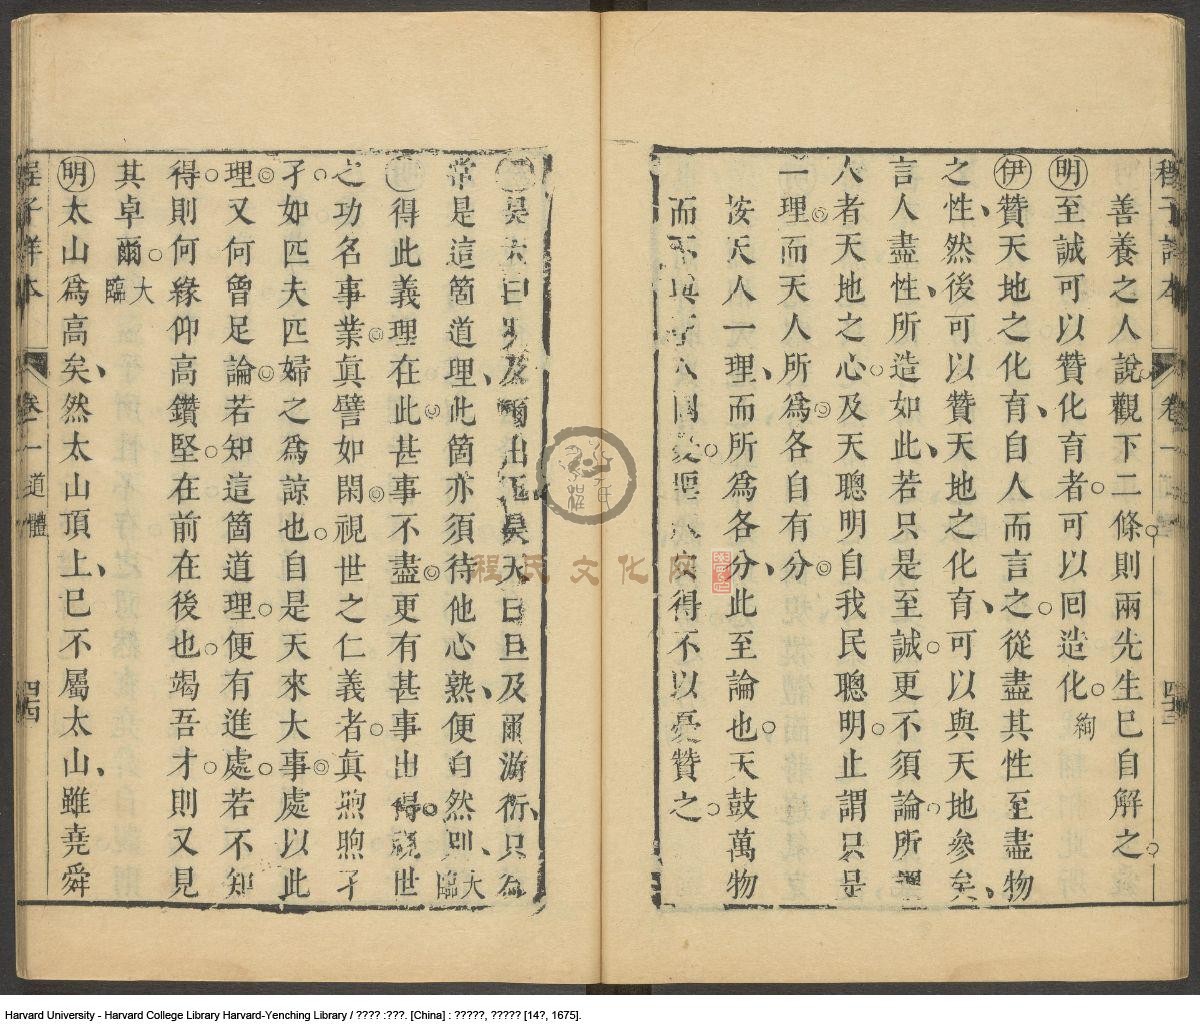 程子詳本
卷一
四十三
善養之人說觀下二條則兩先生已自解之
明至誠可以贊化育者可以回造化絢
伊贊天地之化育自人而言之從盡其性至盡物
之性然後可以贊天地之化育可以與天地參矣
言人盡性所造如此若只是至誠更不須論所謂
人者天地之心及天聰明自我民聰明止謂只是
一理而天人所為各自有分
按天人一理而所為各分此至論也天鼓萬物
而不與聖人同憂聖人安得不以憂贊之
昊天曰明及爾出王昊天曰旦及爾游衍只為
常是這箇道理此箇亦須待他心熟便自然別大臨
得此義理在此甚事不盡更有甚事出得視世
之功名事業真譬如閑視世之仁義者真煦煦孑
孑如匹夫匹婦之為諒也自是天來大事處以此
理又何曾足論若知這箇道理便有進處若不知
得則何緣仰高鑽堅在前在後也竭吾才則又見
其卓爾大臨
明太山爲高矣然太山頂上已不屬太山雖堯舜
程子詳本
卷一
道體
四十四
程氏文化网
Harvard University - Harvard College Library Harvard-Yenching Library / ???? :???. [China] : ?????, ????? [14?, 1675].